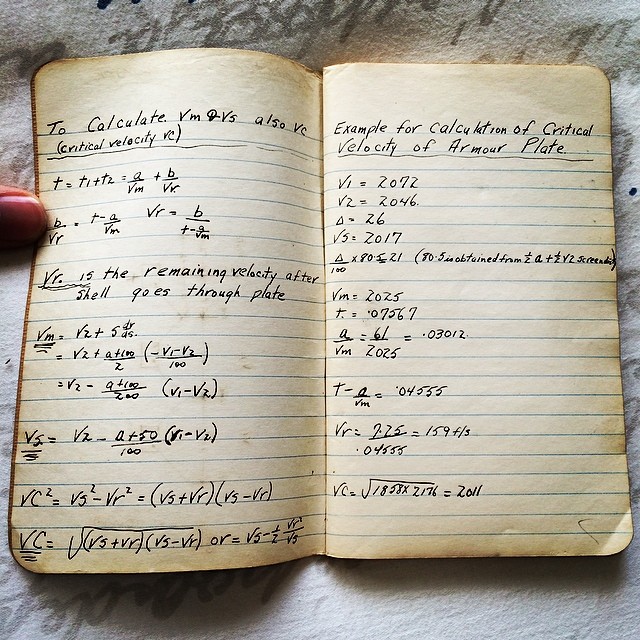 To Calculate Vm & Vs also Vc
(critical velocity vc)
t = t1+t2 = a/Vm + b/Vr
b/Vr = t-a/Vm Vr = b/t-a/Vm
Vr. is the remaining velocity after
shell goes through plate
Vm = V2 + S dv/ds.
= V2 + a+100/2 (-V1-V2/100)
= V2 - a+100/200 (V1-V2)
Vs = V2 - a+50/100 (V1-V2)
VC² = Vs² - Vr² = (Vs+Vr)(Vs-Vr)
VC = √(Vs+Vr)(Vs-Vr) or = Vs-½ Vr²/Vs
Example for Calculation of Critical
Velocity of Armour Plate.
V1 = 2072
V2 = 2046.
Δ = 26
Vs = 2017
Δ/100 × 80.5 = 21 (80.5 is obtained from ½ a + ½ V2 Screen
Vm = 2025
t = .07567
a/Vm = 61/2025 = .03012
T - a/Vm = .04555
Vr = 7.25/.04555 = 159 f/s
VC = √1858 × 2176 = 2011